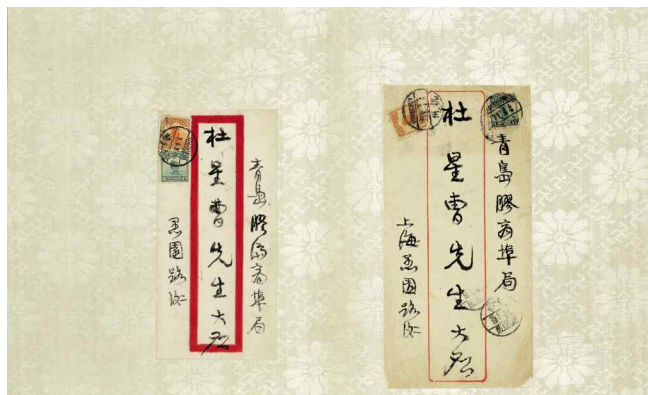 青島膠濟商埠局
杜星曹先生大啟
愚園路緘
青島膠商埠局
杜星曹先生大啟
上海愚園路緘